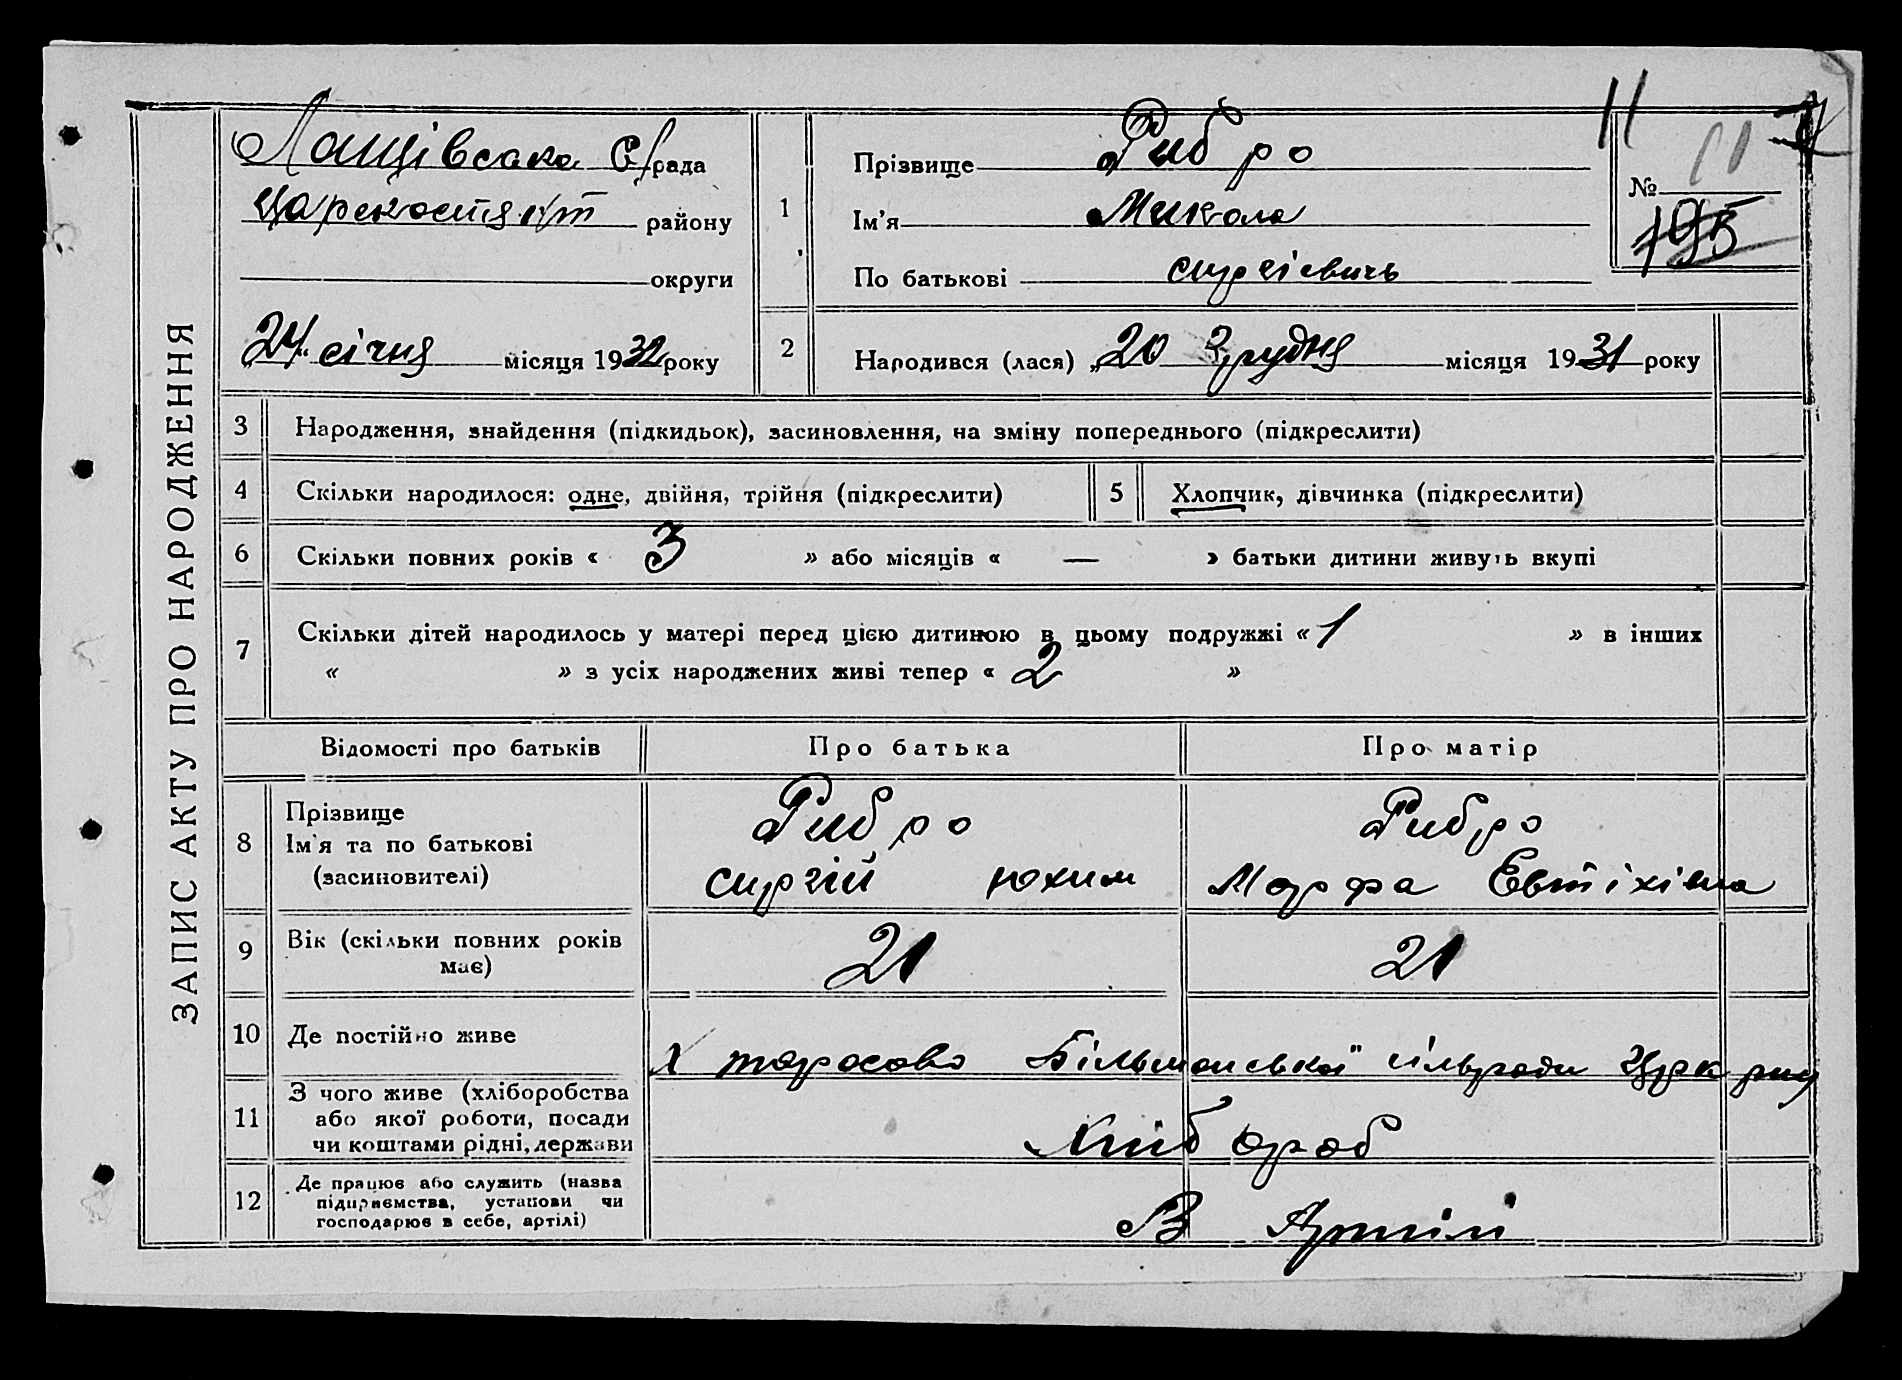 ЗАПИС АКТУ ПРО НАРОДЖЕННЯ
Лащівська С/рада
району
округи
"24" січня місяця 1932 року
1
Прізвище Рибро
Ім'я Микола
По батькові Сиргієвичь
11
№ 11
195
2
Народився (лася) "20 Згрудня місяця 1931 року
3 Народження, знайдення (підкидьок), засиновлення, на зміну попереднього (підкреслити)
4 Скільки народилося: одне, двійня, трійня (підкреслити)
5 Хлопчик, дівчинка (підкреслити)
6 Скільки повних років « 3 » або місяців « — » батьки дитини живуть вкупі
7 Скільки дітей народилось у матері перед цією дитиною в цьому подружжі « 1 » в інших
« » з усіх народжених живі тепер « 2 »
Відомості про батьків Про батька Про матір
8 Прізвище
Ім'я та по батькові
(засиновителі)
Рибро
Сиргій Юхим
Рибро
Марфа Евтіхівна
9 Вік (скільки повних років
має)
21 21
10 Де постійно живе
Х тарасово Більманської сільради
11 З чого живе (хліборобства
або якої роботи, посади
чи коштами рідні, держави
Хліб ороб
12 Де працює або служить (назва
підприємства, установи чи
господарює в себе, артілі)
В Артілі